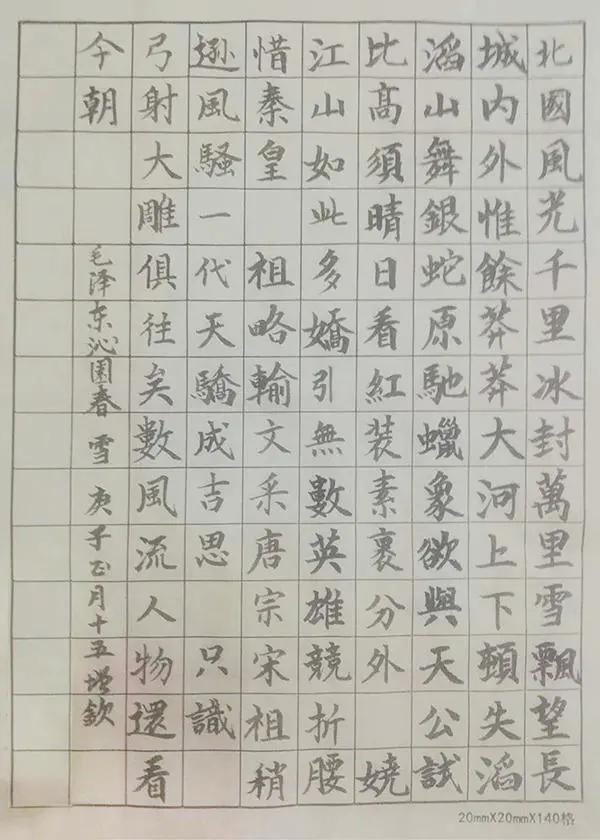 北國風光千里冰封萬里雪飄望長
城内外惟餘莽莽大河上下頓失滔
滔山舞銀蛇原馳蠟象欲與天公試
比高須晴日看紅装素裹分外嬈
江山如此多嬌引無數英雄競折腰
惜秦皇 祖略輸文采唐宗宋祖稍
遜風騷一代天驕成吉思 只識
弓射大雕俱往矣數風流人物還看
今朝
毛泽东沁園春 雪 庚子正月十五增欽
20mmX20mmX140格